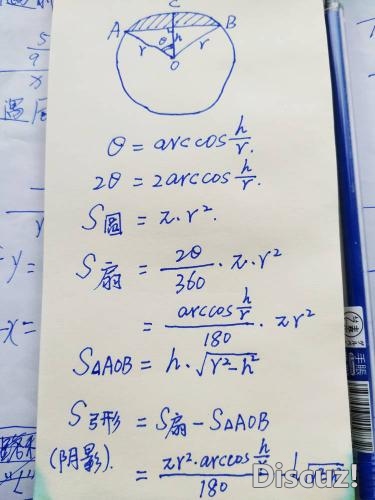 C
A B
θ h
r r
O
θ = arccos h/r.
2θ = 2arccos h/r.
S圆 = π·r².
S扇 = 2θ/360 · π·r²
= arccos h/r / 180 · πr²
S△AOB = h·√r²-h²
S弓形 = S扇 - S△AOB
(阴影). = πr²·arccos h/r / 180
Discuz!